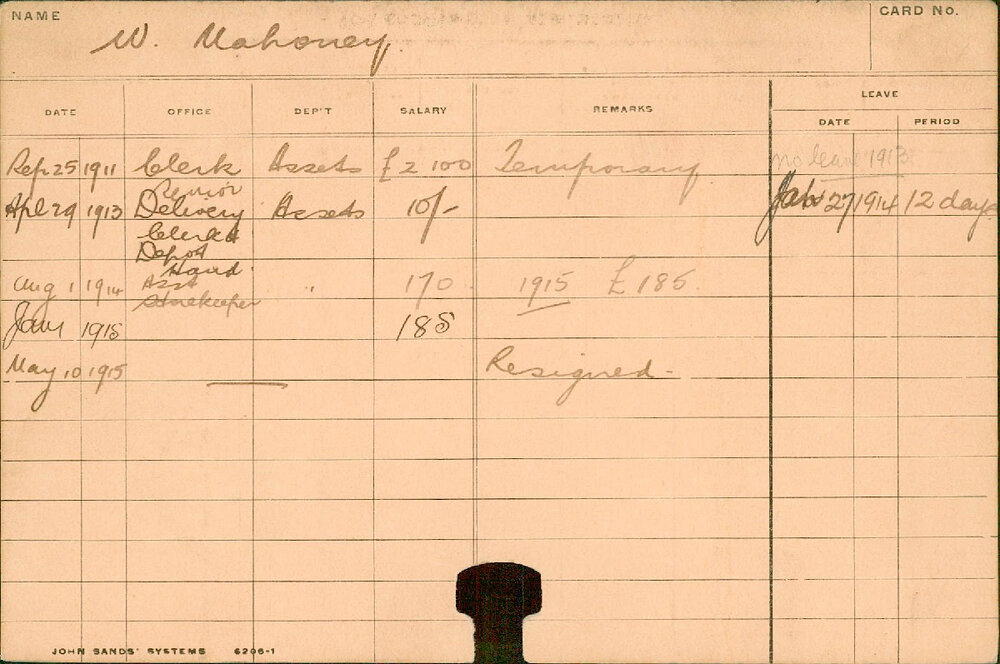 NAME
W. Mahoney.
CARD No.
DATE OFFICE DEP'T SALARY REMARKS LEAVE
DATE PERIOD
Sep 25 1911 Clerk Assets £2 100 Temporary no leave 1913
Senior
Apl 29 1913 Delivery Assets 10/- Jan 27 1914 12 days
Clerk &
Depot
Hand.
Aug 1 1914 Asst " 170 1915 £185.
Storekeeper
Jany 1915 185
May 10 1915 Resigned-
JOHN SANDS' SYSTEMS 6206-1